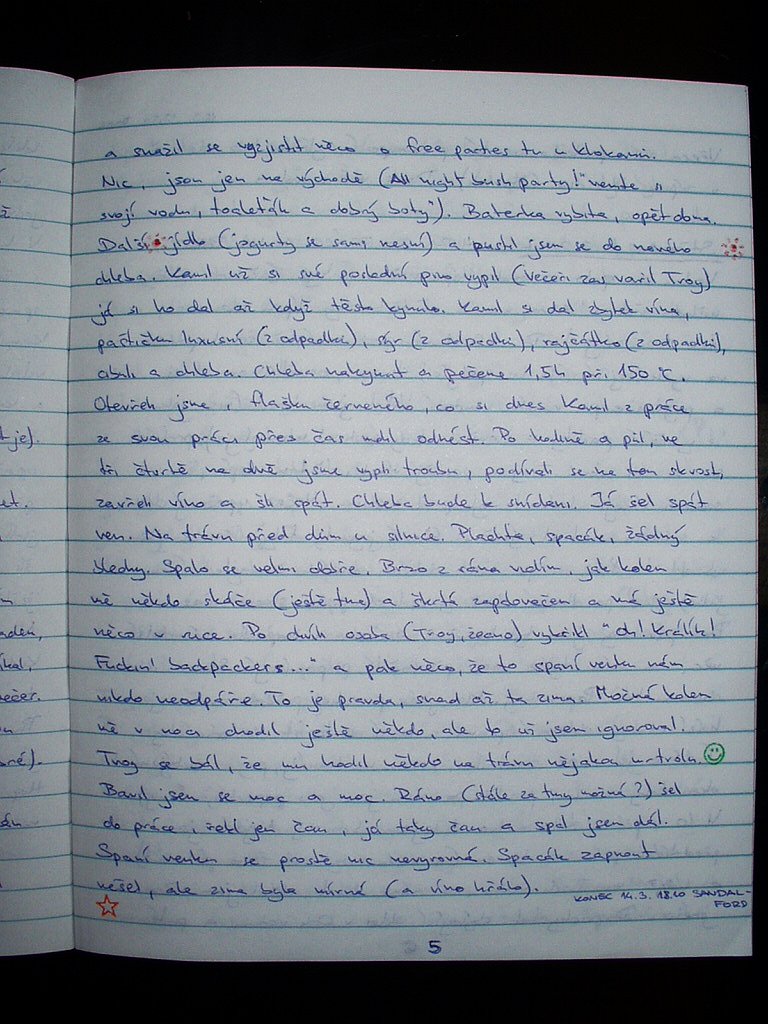 a snažil se vyzjistit něco o free parties tu u klokanů.
Nic, jsou jen na východě (All night bush party! "vemte si
svojí vodu, toaleťák a dobrý boty"). Baterka vybita, opět doma.
Další jídlo (jogurty se sami nesní) a pustil jsem se do nového
chleba. Kamil už si své poslední pivo vypil (Večeři zas vařil Troy)
já si ho dal až když těsto kynulo. Kamil si dal zbytek vína,
paštičku luxusní (z odpadků), sýr (z odpadků), rajčátko (z odpadků),
cibuli a chleba. Chleba nakynut a pečeme 1,5h při 150°C.
Otevřeli jsme flašku červeného, co si dnes Kamil z práce
ze svou práci přes čas mohl odnést. Po hodině a půl, ve
tři čtvrtě na dvě jsme vypli troubu, podívali se na ten skvost,
zavřeli víno a šli spát. Chleba bude k snídani. Já šel spát
ven. Na trávu před dům u silnice. Plachta, spacák, žádný
hledny. Spalo se velmi dobře. Brzo z rána vidím, jak kolem
mě někdo skáče (ještě tma) a škrtá zapalovačem a má ještě
něco v ruce. Po chvíli osoba (Troy, žejo) vykřikl "oh! králík!
Fuckin' backpackers..." a pak něco, že to spaní venku nám
nikdo neodpáře. To je pravda, snad až ta zima. Možná kolem
mě v noci chodil ještě někdo, ale to už jsem ignoroval.
Troy se bál, že mu hodil někdo na trávu nějakou mrtvolu.
Bavil jsem se moc a moc. Ráno (stále za tmy možná?) šel
do práce, řekl jen čau, já taky čau a spal jsem dál.
Spaní venku se prostě nic nevyrovná. Spacák zapnout
nešel, ale zima byla mírná (a víno hřálo).
KONEC 14.3. 18.40 SANDAL-
FORD
5